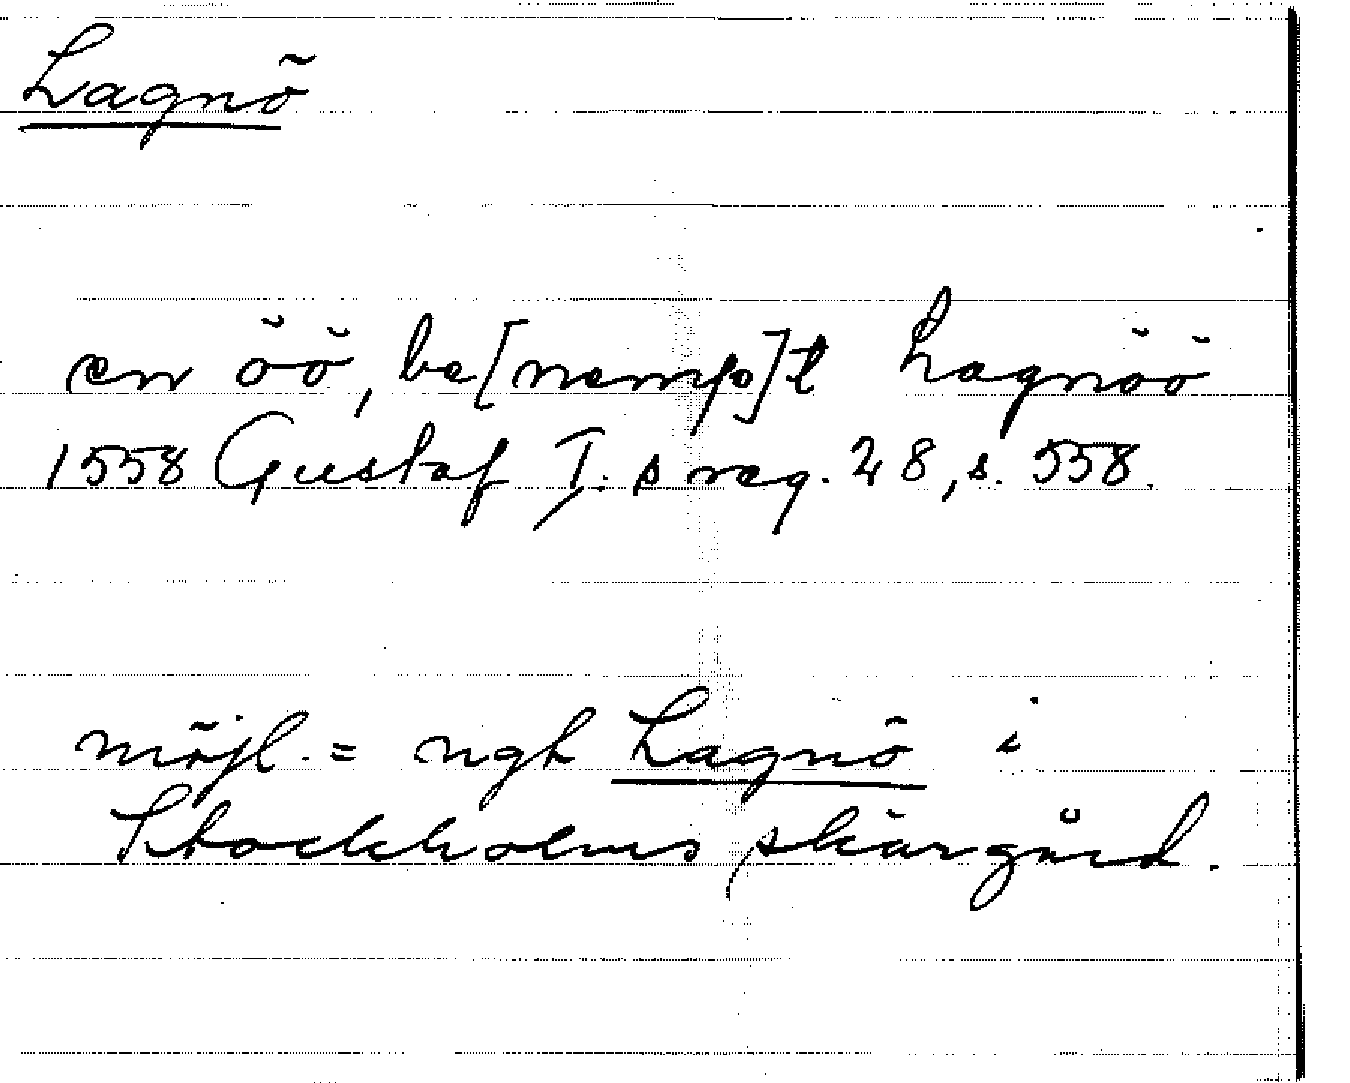 Lagnö
en öö, be[nemp]t Lagnöö
1558 Gustaf I:s reg. 28, s. 558.
möjl. = ngt Lagnö i
Stockholms skärgård.